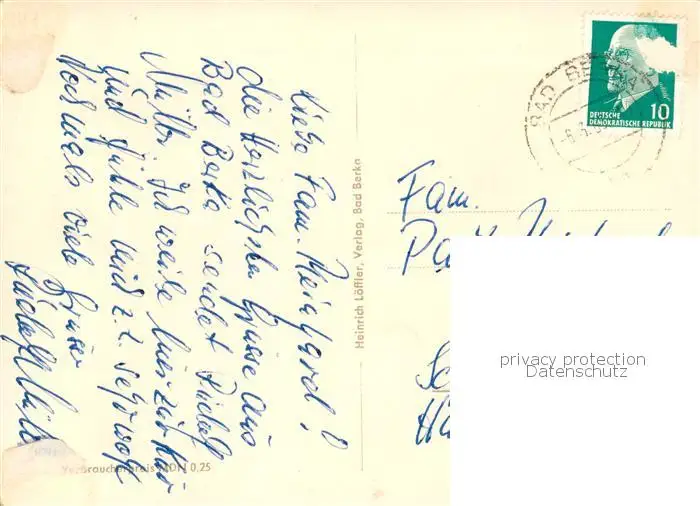 Liebe Fam. Reinhard!
die Herzlichsten Grüsse aus
Bad Berka sendet Rudolf
Müller. Ich weile hier zur Kur
und fühle mich z.Z. sehr wohl
Nochmals viele Grüsse
Rudolf Müller
Verbraucherpreis MDN 0,25
Heinrich Löffler, Verlag, Bad Berka
BAD BERKA
10
DEUTSCHE
DEMOKRATISCHE REPUBLIK
Fam.
privacy protection
Datenschutz